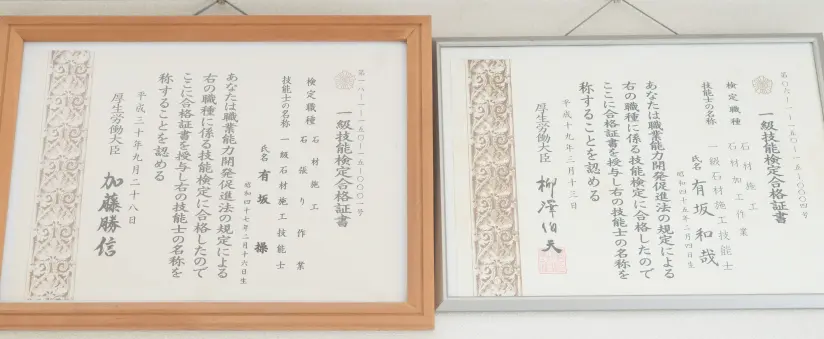 第一八-一-一五〇-一五-〇〇〇一号
一級技能検定合格証書
検定職種 石材施工
石張り作業
技能士の名称 一級石材施工技能士
氏名 有坂 操
昭和四十七年二月十六日生
あなたは職業能力開発促進法の規定による
右の職種に係る技能検定に合格したので
ここに合格証書を授与し右の技能士の名称を
称することを認める
平成三十年九月二十八日
厚生労働大臣 加藤勝信
一級技能検定合格証書
検定職種 石材施工
石材加工作業
技能士の名称 一級石材施工技能士
氏名 有坂和哉
昭和四十五年二月四日生
あなたは職業能力開発促進法の規定による
右の職種に係る技能検定に合格したので
ここに合格証書を授与し右の技能士の名称を
称することを認める
平成十九年三月十三日
厚生労働大臣 柳澤伯夫